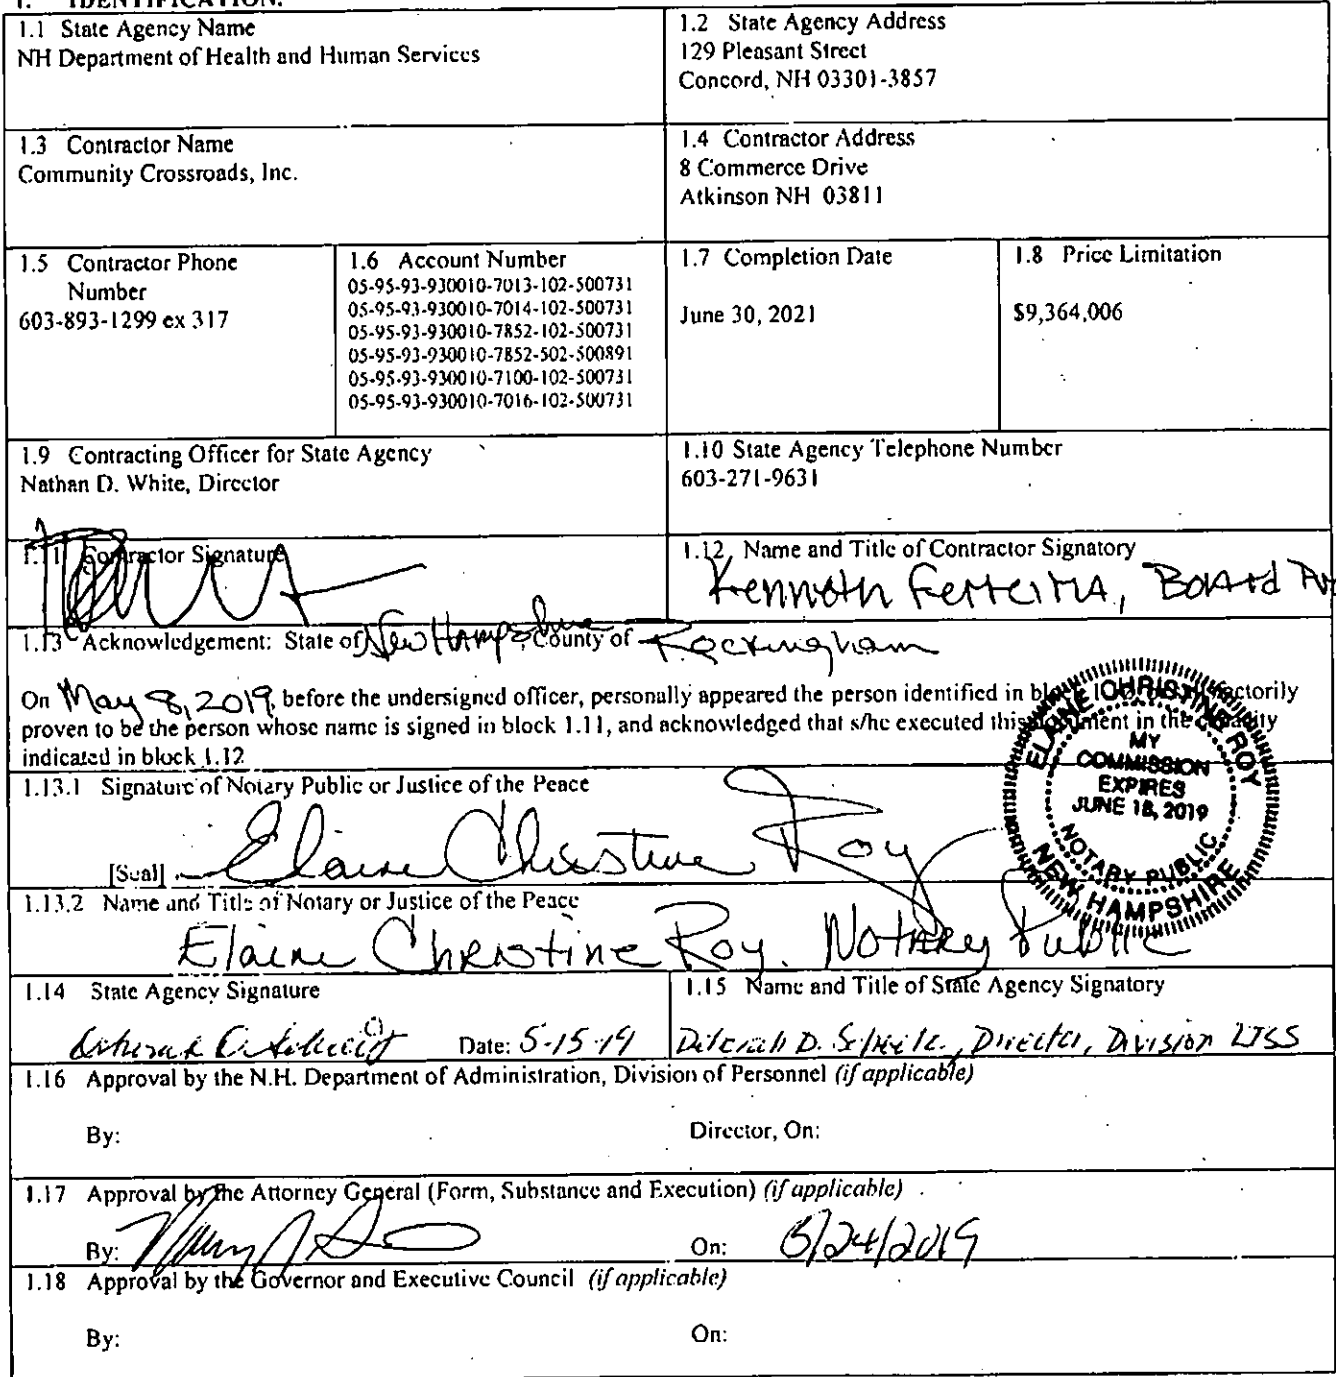 1. IDENTIFICATION.
1.1 State Agency Name
NH Department of Health and Human Services
1.2 State Agency Address
129 Pleasant Street
Concord, NH 03301-3857
1.3 Contractor Name
Community Crossroads, Inc.
1.4 Contractor Address
8 Commerce Drive
Atkinson NH 03811
1.5 Contractor Phone
Number
603-893-1299 ex 317
1.6 Account Number
05-95-93-930010-7013-102-500731
05-95-93-930010-7014-102-500731
05-95-93-930010-7852-102-500731
05-95-93-930010-7852-502-500891
05-95-93-930010-7100-102-500731
05-95-93-930010-7016-102-500731
1.7 Completion Date
June 30, 2021
1.8 Price Limitation
$9,364,006
1.9 Contracting Officer for State Agency
Nathan D. White, Director
1.10 State Agency Telephone Number
603-271-9631
1.11 Contractor Signature
1.12 Name and Title of Contractor Signatory
Kenneth Ferreira, Board
1.13 Acknowledgement: State of New Hampshire, County of Rockingham
On May 8, 2019, before the undersigned officer, personally appeared the person identified in block
proven to be the person whose name is signed in block 1.11, and acknowledged that s/he executed this document in the capacity
indicated in block 1.12
ELAINE CHRISTINE ROY
MY
COMMISSION
EXPIRES
JUNE 18, 2019
NOTARY PUBLIC
NEW HAMPSHIRE
1.13.1 Signature of Notary Public or Justice of the Peace
[Seal] Elaine Christine Roy
1.13.2 Name and Title of Notary or Justice of the Peace
Elaine Christine Roy. Notary Public
1.14 State Agency Signature
Date: 5-15-19
1.15 Name and Title of State Agency Signatory
D. Director, Division LTSS
1.16 Approval by the N.H. Department of Administration, Division of Personnel (if applicable)
By: Director, On:
1.17 Approval by the Attorney General (Form, Substance and Execution) (if applicable)
By: On: 5/24/2019
1.18 Approval by the Governor and Executive Council (if applicable)
By: On: